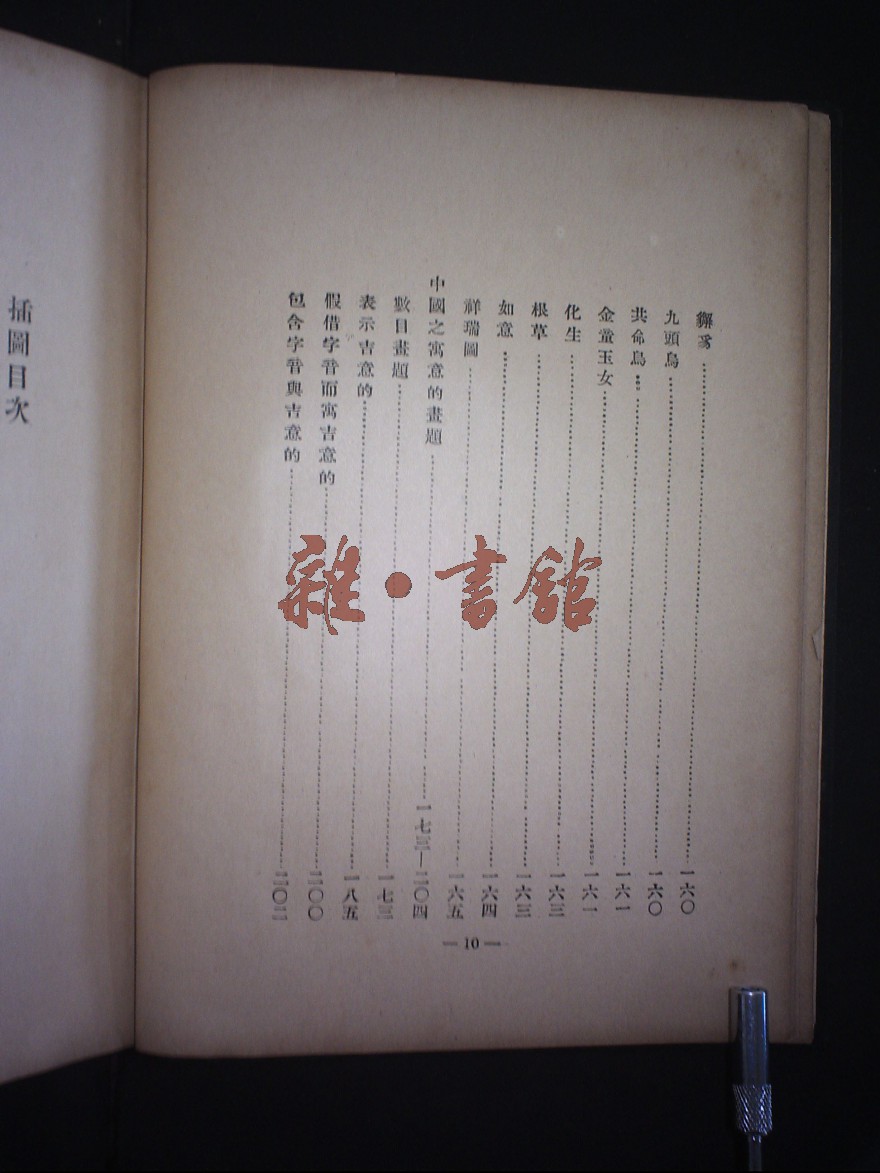 獬豸……一六〇
九頭鳥……一六〇
共命鳥……一六一
金童玉女……一六一
化生……一六二
根草……一六三
如意……一六四
祥瑞圖……一六五
中國之寓意的畫題……一七三—二〇四
數目畫題……一七三
表示吉意的……一八五
假借字音而寓吉意的……二〇〇
包含字音與吉意的……二〇二
— 10 —
插圖目次
雜·書館